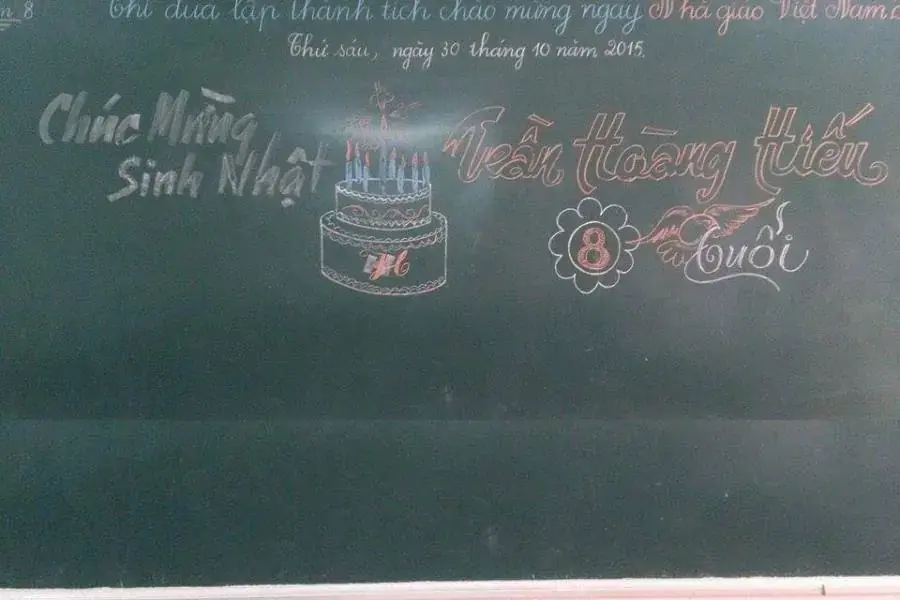 n 8
Thi đua lập thành tích chào mừng ngày Nhà giáo Việt Nam
Thứ sáu, ngày 30 tháng 10 năm 2015.
Chúc Mừng
Sinh Nhật
Trần Hoàng Hiếu
8 tuổi